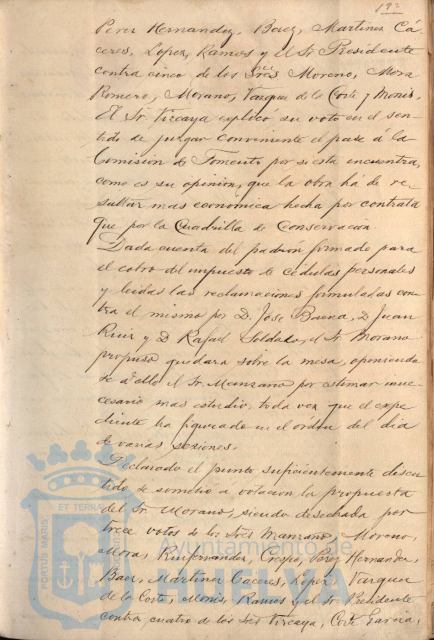 193
Perez Hernandez, Baez, Martinez Cá-
ceres, Lopez, Ramos y el Sr Presidente
contra cinco de los Sres Moreno, Mora
Romero, Morano, Vazquez de la Corte y Monis.
El Sr Vizcaya explicó su voto en el sen-
tido de juzgar conveniente el pase á la
Comision de Fomento por si esta encuentra,
como es su opinion, que la obra há de re-
sultar mas economica hecha por contrata
que por la Cuadrilla de Conservacion
Dada cuenta del padron formado para
el cobro del impuesto de cédulas personales
y leidas las reclamaciones formuladas con-
tra el mismo por D. José Baena, D. Juan
Ruiz y D Rafael Soldado, el Sr Morano
propuso quedara sobre la mesa, oponiendo-
se á ello el Sr Manzano por estimar inne-
cesario mas estudio, toda vez que el expe-
diente ha figurado en el órden del dia
de varias sesiones.
Declarado el punto suficientemente discu-
tido se sometió á votacion la propuesta
del Sr Morano, siendo desechada por
trece votos de los Sres Manzano, Moreno,
Mora, Ruifernandez, Crespo, Perez Hernandez,
Baez, Martinez Caceres, Lopez, Vazquez
de la Corte, Monis, Ramos y el Sr Presidente
contra cuatro de los Sres Vizcaya, Corte Garcia,
PORTUS MARIS ET TERRAE
Ayuntamiento de
HUELVA